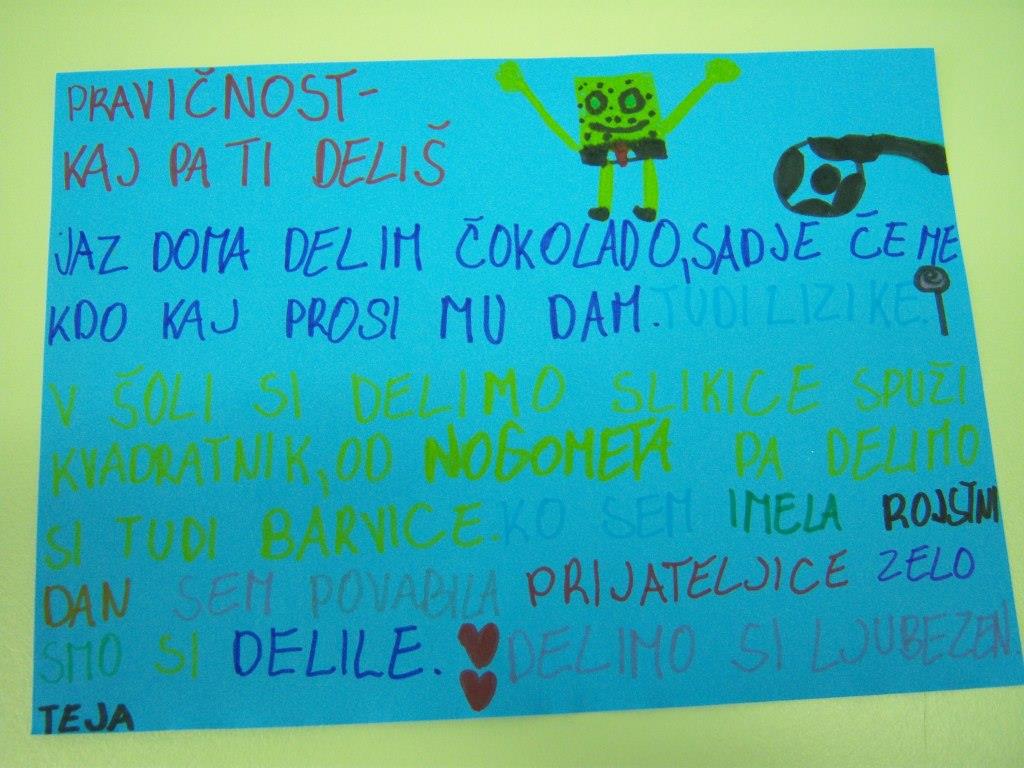 PRAVIČNOST-
KAJ PA TI DELIŠ
JAZ DOMA DELIM ČOKOLADO,SADJE ČE ME
KDO KAJ PROSI MU DAM. TUDI LIZIKE.
V ŠOLI SI DELIMO SLIKICE SPUŽI
KVADRATNIK, OD NOGOMETA PA DELIMO
SI TUDI BARVICE. KO SEM IMELA ROJSTNI
DAN SEM POVABILA PRIJATELJICE ZELO
SMO SI DELILE. DELIMO SI LJUBEZEN.
TEJA